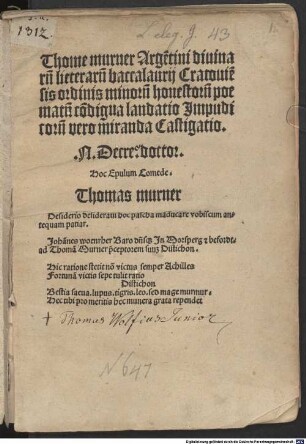 L. eleg. g. 43
1512.
Thome murner Argẽtini diuina
rũ litterarũ baccalaurij Cracouiẽ
sis ordinis minorũ honestorũ poe
matũ cõdigna laudatio Impudi
corũ vero miranda Castigatio.
.N. Decre. doctor.
Hoc Epulum Comede.
Thomas murner
Desiderio desideraui hoc pascha mãducare vobiscum an
tequam patiar.
In Morsperg ⁊ befordt
ad Thomã Murner p̃ceptorem suũ Distichon.
Hic ratione stetit nõ victus semper Achilles
Fortunã victis sepe tulit ratio
Distichon
Bestia saeua. lupus. tigris. leo. sed mage murmur.
Hoc tibi pro meritis hec munera grata rependet
+ Thomas Wolfius Junior
N 647